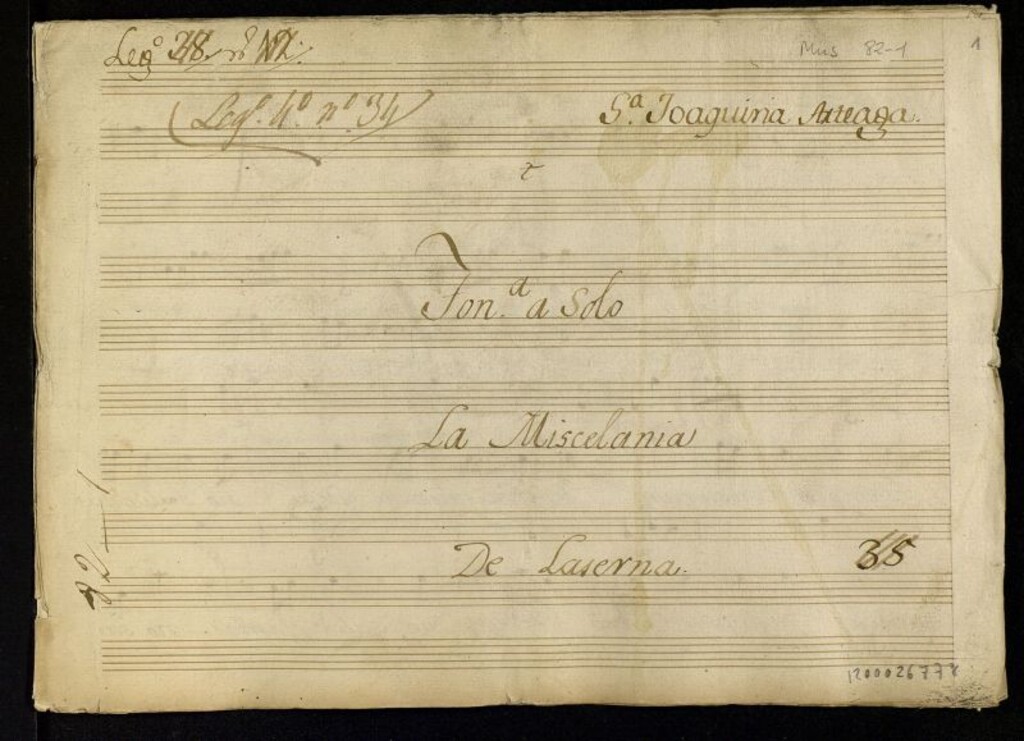 Leg.º 38. nº 12.
Mus 82-1
1
(Leg.º 4º nº 34)
S.ª Joaquina Arteaga.
Ton.ª a Solo
La Miscelania
De Laserna.
35
82-1
1200026778